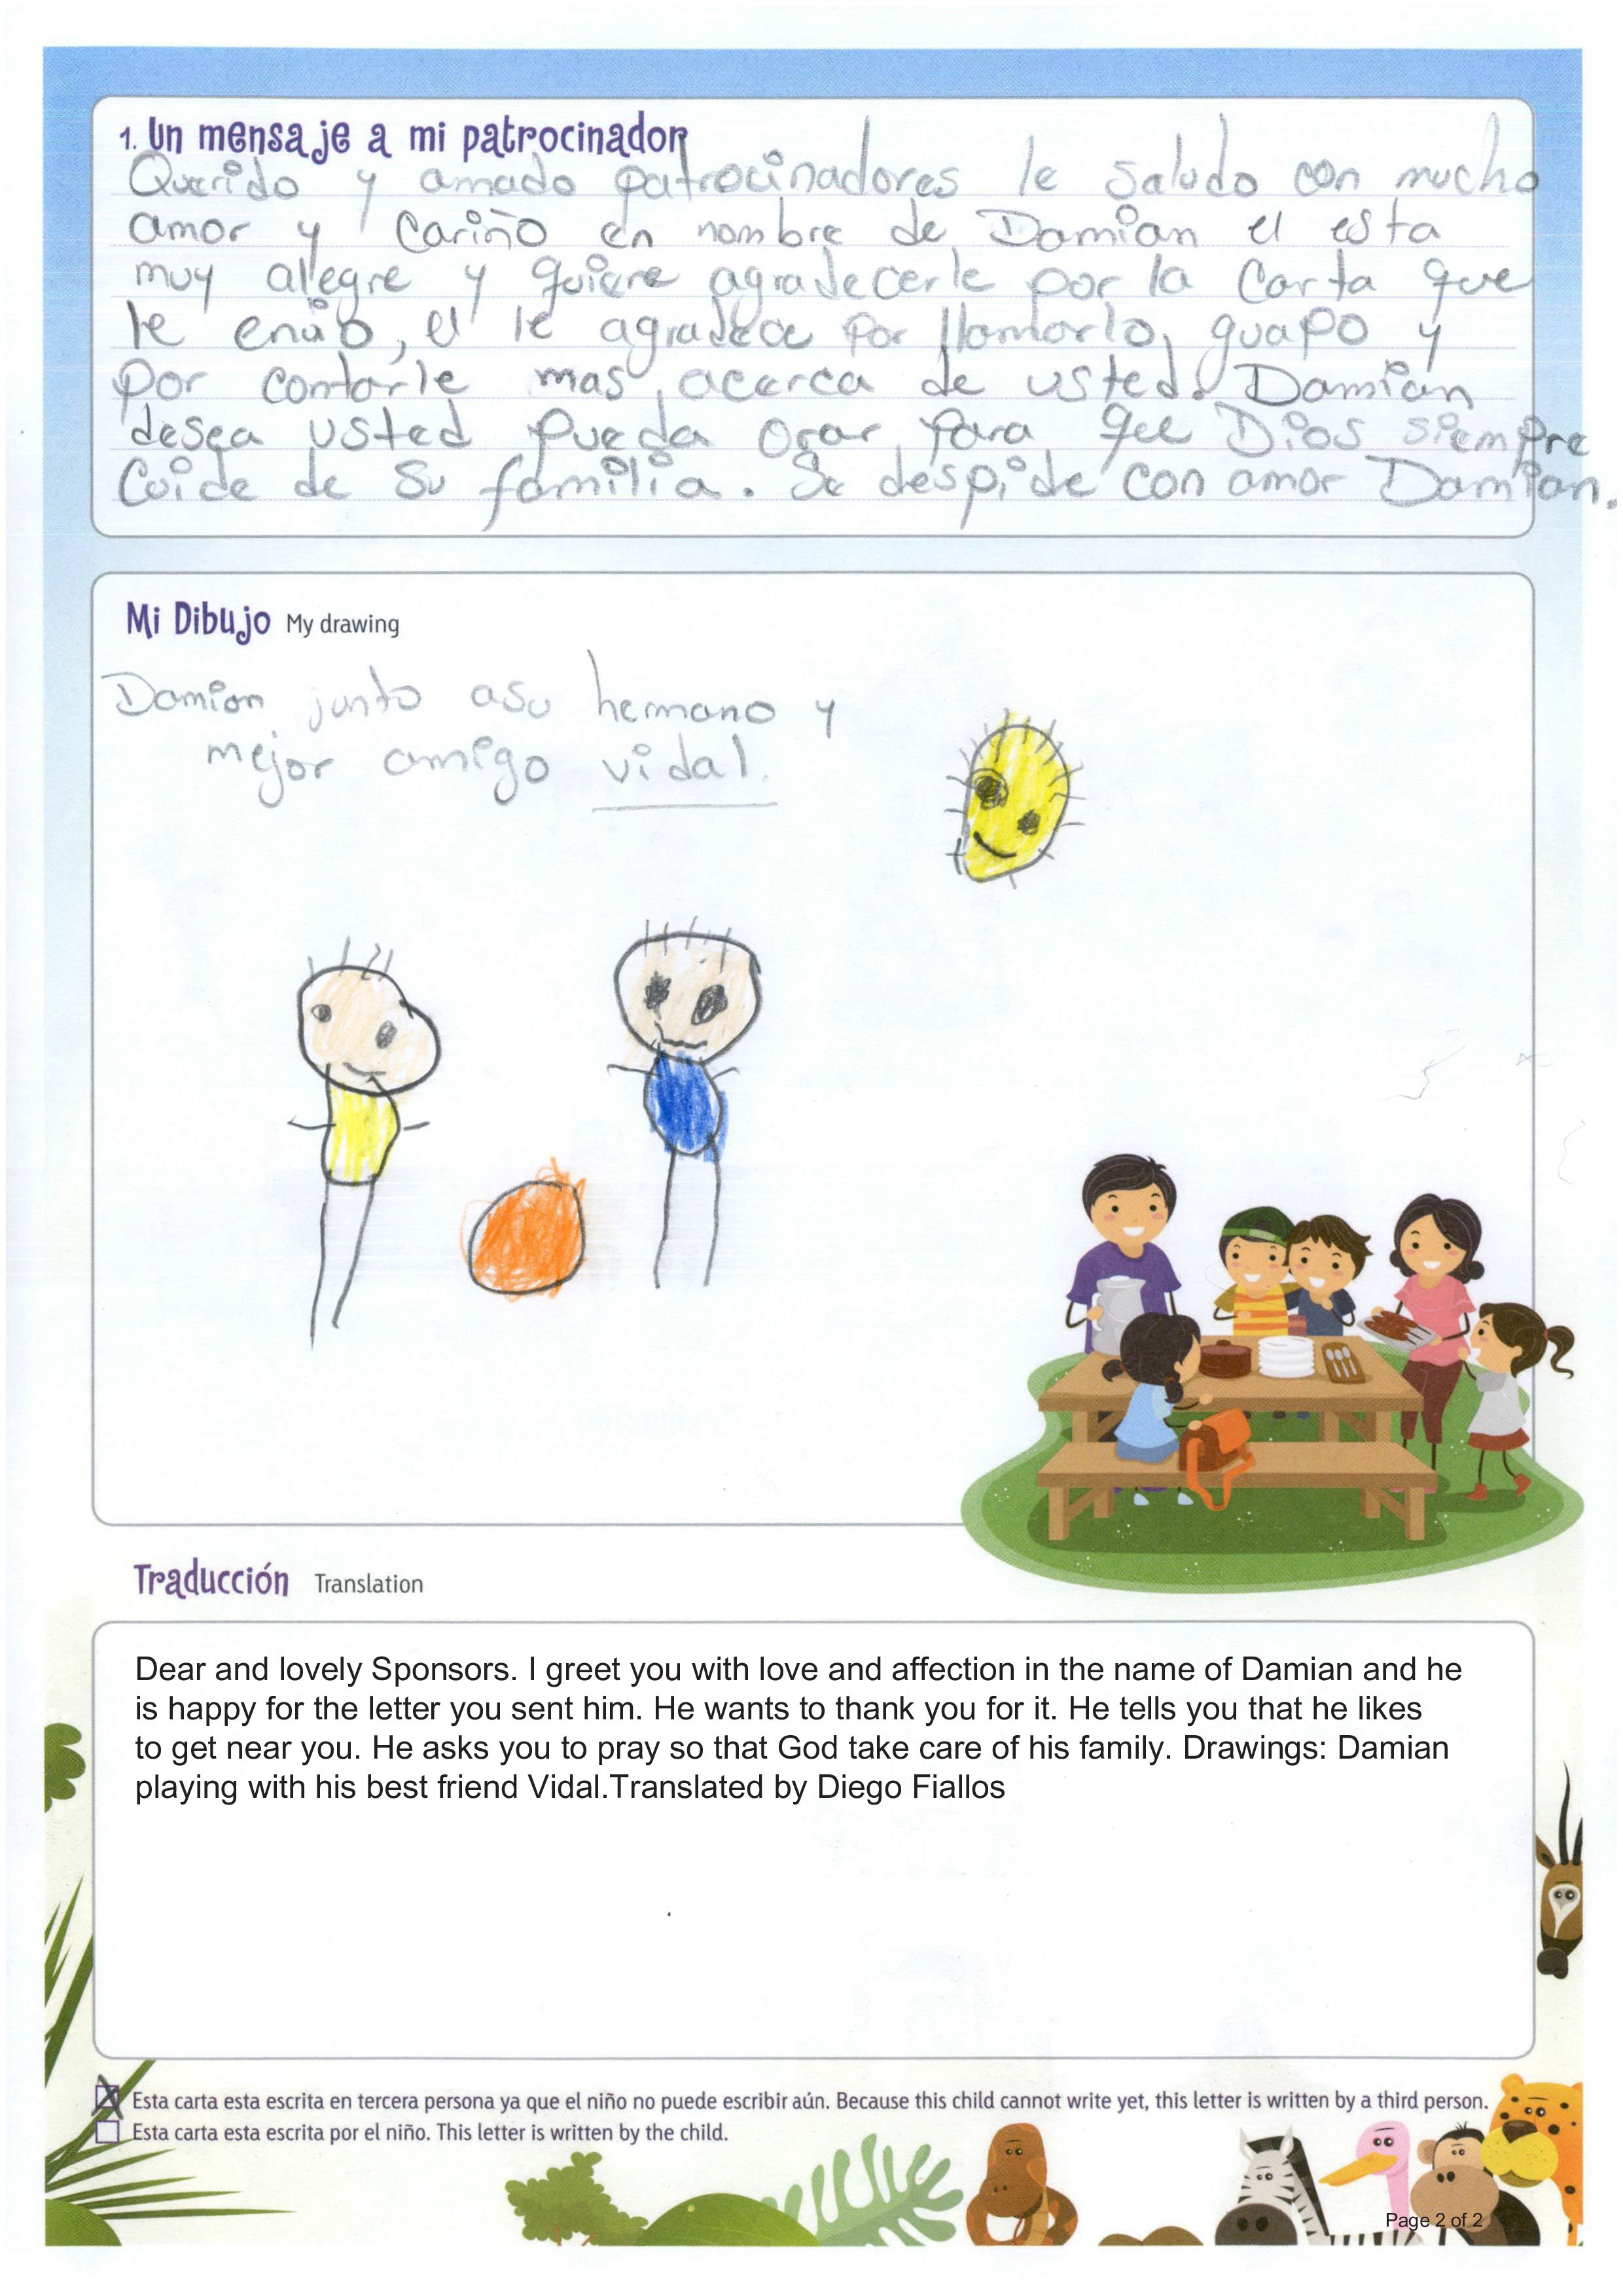 1. Un mensaje a mi patrocinador
Querido y amado patrocinadores le saludo con mucho
amor y cariño en nombre de Damian el esta
muy alegre y quiere agradecerle por la carta que
le envio, el le agradece por llamarlo guapo y
por contarle mas acerca de usted. Damian
desea usted pueda orar para que Dios siempre
cuide de su familia. Se despide con amor Damian.
Mi Dibujo My drawing
Damian junto asu hermano y
mejor amigo vidal.
Traducción Translation
Dear and lovely Sponsors. I greet you with love and affection in the name of Damian and he
is happy for the letter you sent him. He wants to thank you for it. He tells you that he likes
to get near you. He asks you to pray so that God take care of his family. Drawings: Damian
playing with his best friend Vidal.Translated by Diego Fiallos
Esta carta esta escrita en tercera persona ya que el niño no puede escribir aún. Because this child cannot write yet, this letter is written by a third person.
Esta carta esta escrita por el niño. This letter is written by the child.
Page 2 of 2